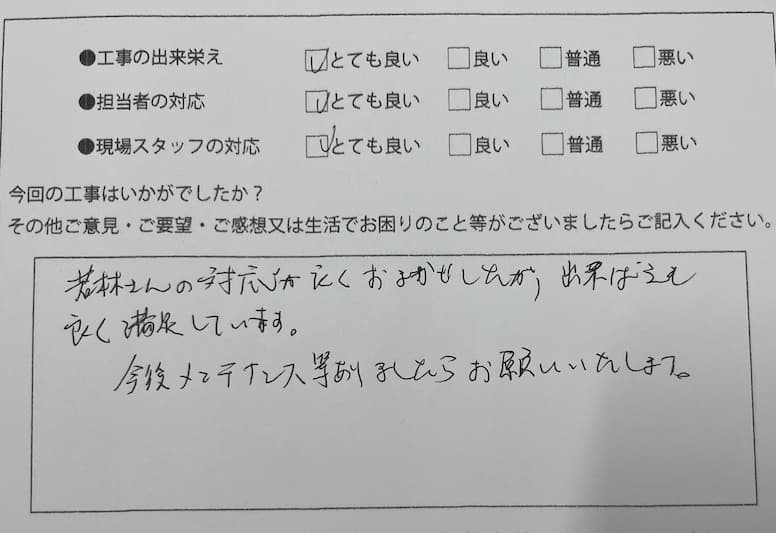 ●工事の出来栄え ☑とても良い □良い □普通 □悪い
●担当者の対応 ☑とても良い □良い □普通 □悪い
●現場スタッフの対応 ☑とても良い □良い □普通 □悪い
今回の工事はいかがでしたか？
その他ご意見・ご要望・ご感想又は生活でお困りのこと等がございましたらご記入ください。
若林さんの対応が良くおまかせしたが，出来ばえも
良く満足しています。
今後メンテナンス等ありましたらお願いいたします。